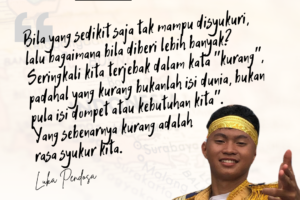 Bila yang sedikit saja tak mampu disyukuri,
lalu bagaimana bila diberi lebih banyak?
Seringkali kita terjebak dalam kata "kurang",
padahal yang kurang bukanlah isi dunia, bukan
pula isi dompet atau kebutuhan kita".
Yang sebenarnya kurang adalah
rasa syukur kita.
Luka Pendosa